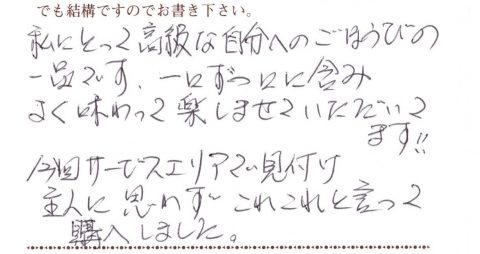 でも結構ですのでお書き下さい。
私にとって高級な自分へのごほうびの
一品です、一口ずつ口に含み
よく味わって楽しませていただいて
ます!!
今回サービスエリアで見付け
主人に思わずこれこれと言って
購入しました。